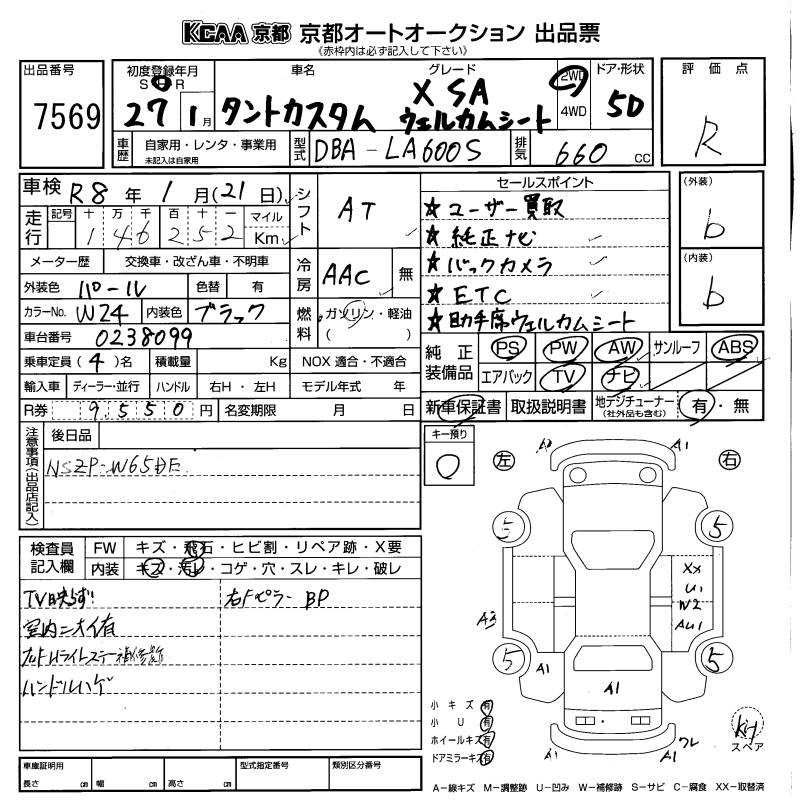 KCAA 京都 京都オートオークション 出品票
《赤枠内は必ず記入して下さい》
出品番号
7569
初度登録年月
S H R
27 1月
車名
タントカスタム
グレード
X SA
ウェルカムシート
2WD
4WD
ドア・形状
5D
評価点
R
車歴
自家用・レンタ・事業用
未記入は自家用
型式
DBA-LA600S
排気
660 cc
車検 R8年 1月(21日)
走行
記号 十 万 千 百 十 一
146252
マイル
Km
シフト
AT
メーター歴 交換車・改ざん車・不明車
外装色 パール 色替 有
カラーNo. W24 内装色 ブラック
車台番号 0238099
冷房 AAC 無
燃料 ガソリン・軽油
( )
乗車定員(4)名 積載量 Kg NOX 適合・不適合
輸入車 ディーラー・並行 ハンドル 右H・左H モデル年式 年
R券 9550円 名変期限 月 日
セールスポイント
★ユーザー買取
★純正ナビ
★バックカメラ
★ETC
★助手席ウェルカムシート
(外装)
b
(内装)
b
純正装備品
PS PW AW サンルーフ ABS
エアバック TV ナビ
新車保証書 取扱説明書 地デジチューナー
(社外品も含む)
有・無
注意事項(出品店記入)
後日品
NSZP-W65DE
キー預り
○
検査員記入欄
FW キズ・飛石・ヒビ割・リペア跡・X要
内装 キズ・汚レ・コゲ・穴・スレ・キレ・破レ
TV映らず!
室内ニオイ有
ハンドルハゲ
右ドピラー BP
左 右
A1
5 5
XX
U1
W2
AU1
A3
5 5
A1
A1
A1
A1 ワレ
小キズ 有
小U 有
ホイールキズ 有
ドアミラーキズ 有
Kit
スペア
車庫証明用
長さ cm 幅 cm 高さ cm
型式指定番号
類別区分番号
A-線キズ M-調整跡 U-凹み W-補修跡 S-サビ C-腐食 XX-取替済